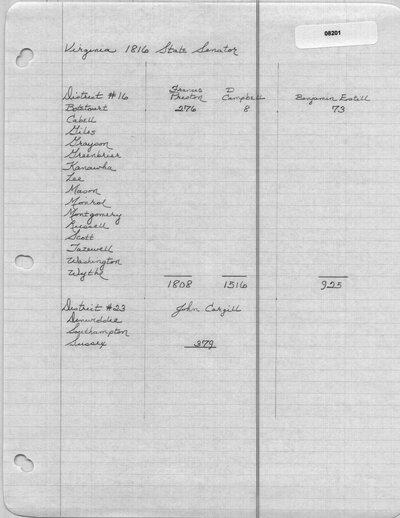 08201
Virginia 1816 State Senator
District #16 Francis Preston D Campbell Benjamin Estill
Botetourt 276 8 73
Cabell
Giles
Grayson
Greenbrier
Kanawha
Lee
Mason
Monroe
Montgomery
Russell
Scott
Tazewell
Washington
Wythe
1808 1516 925
District #23 John Cargill
Dinwiddie
Southampton
Sussex 379